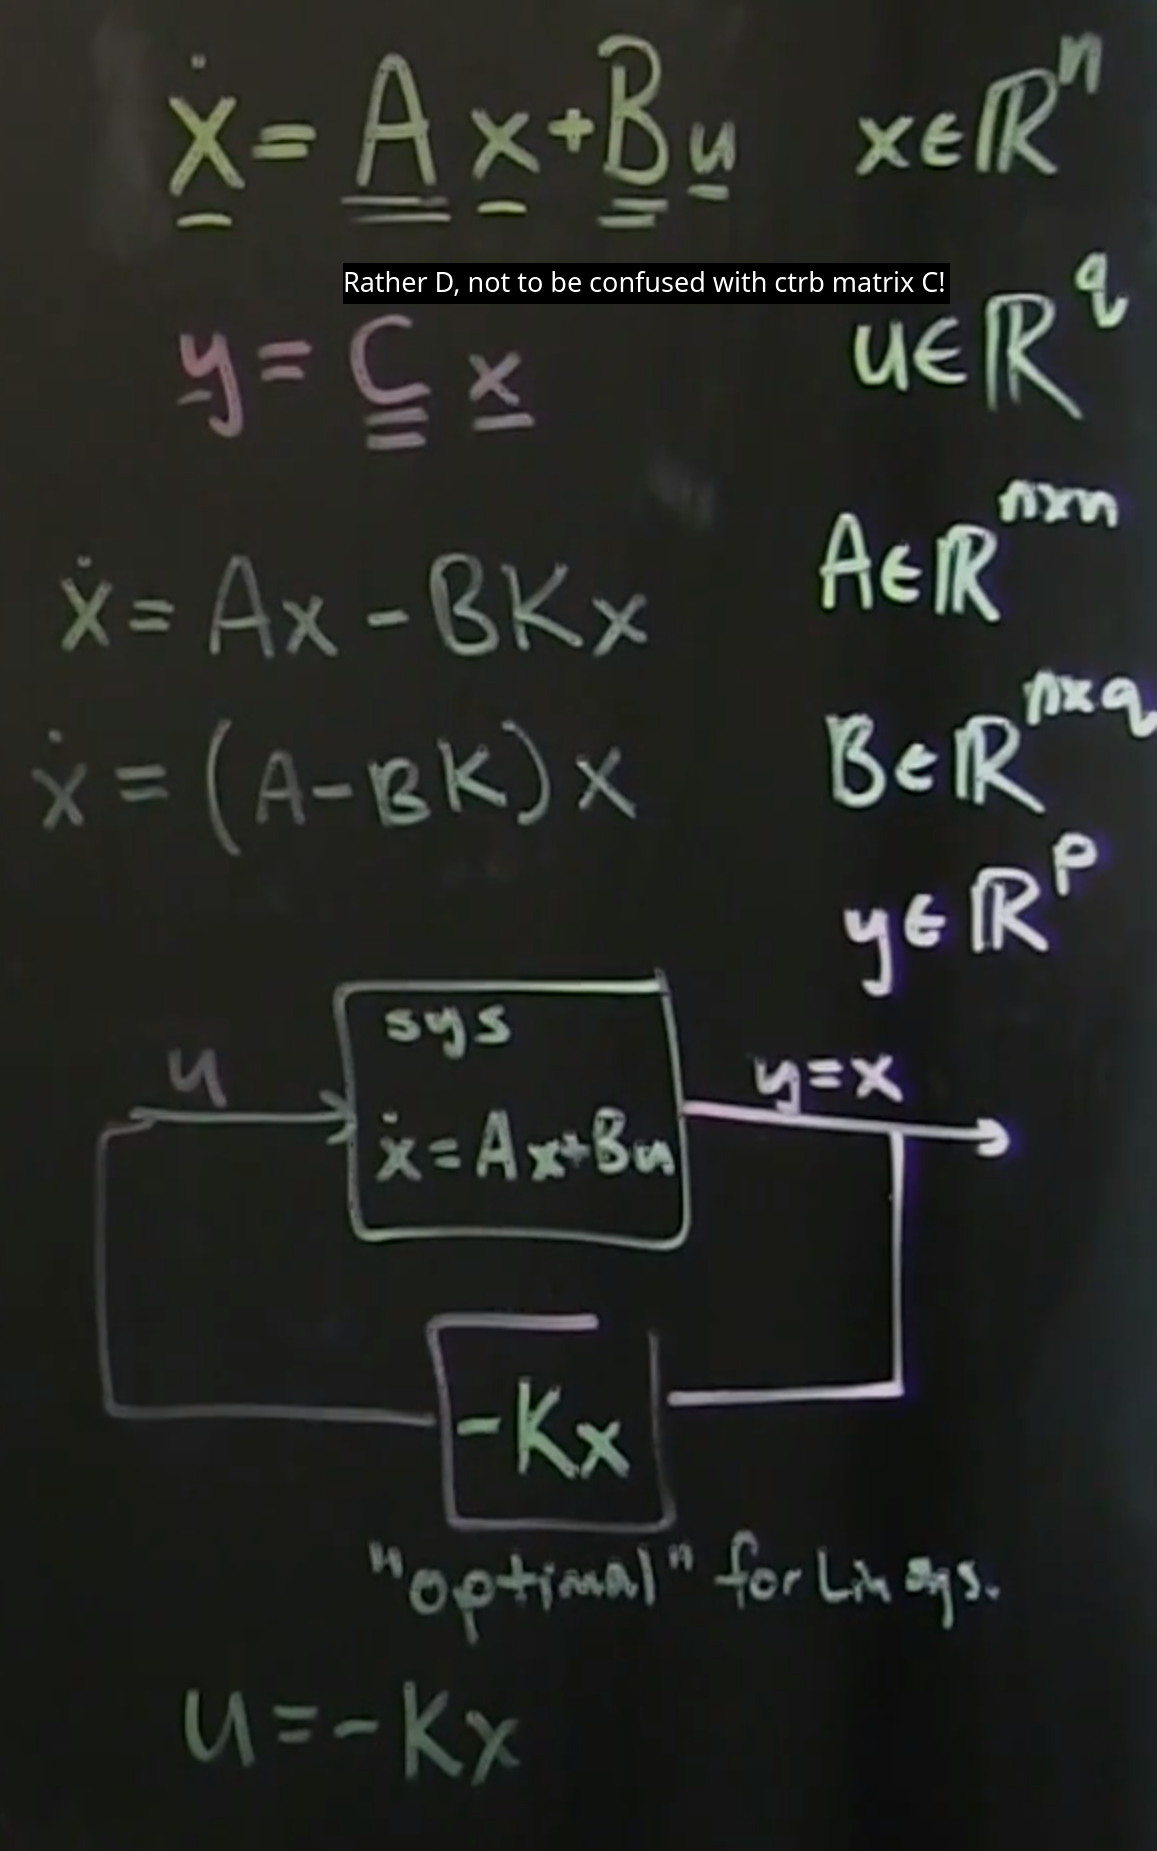 ẋ = A x + B u   x ∈ ℝⁿ
Rather D, not to be confused with ctrb matrix C!
y = C x   u ∈ ℝ^q
ẋ = Ax - BKx   A ∈ ℝ^(n×n)
ẋ = (A - BK) x   B ∈ ℝ^(n×q)
y ∈ ℝ^p
sys
u   y = x
ẋ = Ax + Bu
-Kx
"optimal" for Lin sys.
u = -Kx